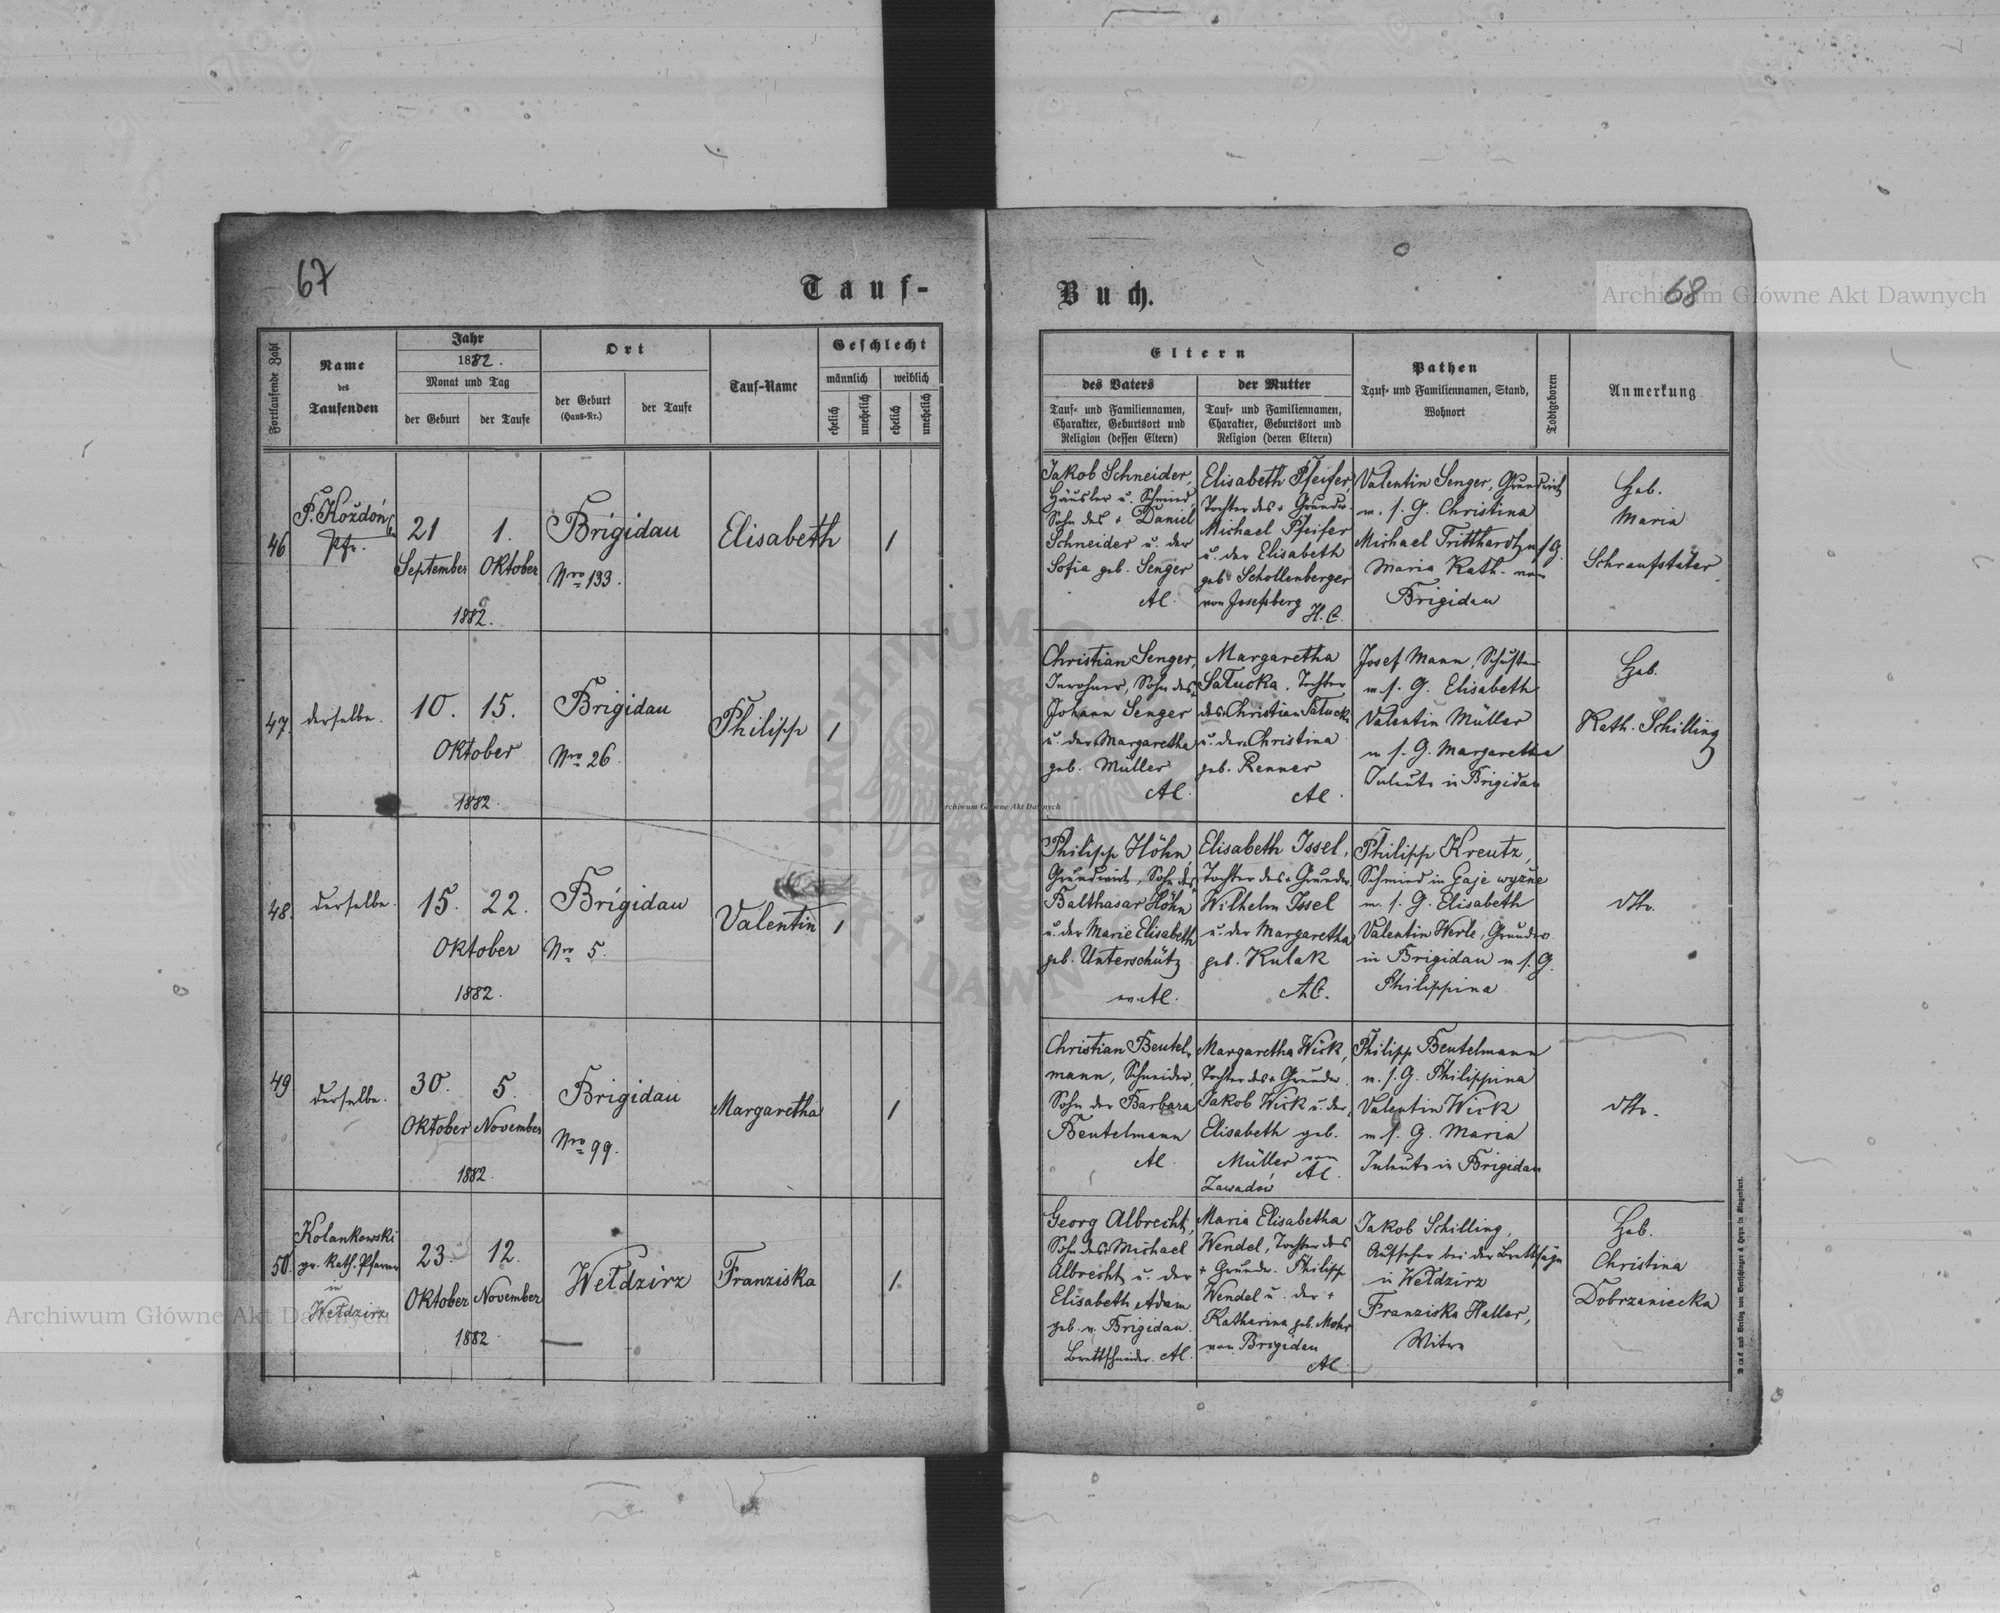 67
Tauf-
Fortlaufende Zahl
Name
des
Taufenden
Jahr
1882.
Monat und Tag
der Geburt
der Taufe
Ort
der Geburt
(Haus-Nr.)
der Taufe
Tauf-Name
Geschlecht
männlich
weiblich
ehelich
unehelich
ehelich
unehelich
46
P. Kożdoń
Pfr.
21
September
1.
Oktober
1882.
Brigidau
Nro 133.
Elisabeth
1
47.
derselbe.
10.
15.
Oktober
1882.
Brigidau
Nro 26.
Philipp
1
48.
derselbe.
15.
22.
Oktober
1882.
Brigidau
Nro 5.
Valentin
1
49
derselbe.
30.
Oktober
5.
November
1882.
Brigidau
Nro 99.
Margaretha
1
50.
Kolankowski
gr. kath. Pfarrer
in
Wełdzirz
23.
Oktober
12.
November
1882
Wełdzirz
Franziska
1.
Buch.
68
Eltern
des Vaters
Tauf- und Familiennamen,
Charakter, Geburtsort und
Religion (dessen Eltern)
der Mutter
Tauf- und Familiennamen,
Charakter, Geburtsort und
Religion (deren Eltern)
Pathen
Tauf- und Familiennamen, Stand,
Wohnort
Todtgeboren
Anmerkung
Jakob Schneider,
Häusler u. Schmied,
Sohn des + Daniel
Schneider u. der
Sofia geb. Senger
AC.
Elisabeth Pfeifer,
Tochter des + Grundw.
Michael Pfeifer
u. der Elisabeth
geb. Schollenberger
von Josefsberg
H.C.
Valentin Senger, Grundwirth
m. s. G. Christina
Michael Tritthardt m. s. G.
Maria Kath. von
Brigidau
Heb.
Maria
Schraufstäter
Christian Senger,
Inwohner, Sohn des +
Johann Senger
u. der Margaretha
geb. Müller
AC.
Margaretha
Sałucka, Tochter
des Christian Sałucki
u. der Christina
geb. Renner
AC.
Josef Mann, Schuster
m. s. G. Elisabeth
Valentin Müller
m. s. G. Margaretha
Inleute in Brigidau
Heb.
Kath. Schilling
Philipp Höhn,
Grundwirt, Sohn des
Balthasar Höhn
u. der Marie Elisabeth
geb. Unterschütz
ev. AC.
Elisabeth Issel,
Tochter des + Grundw.
Wilhelm Issel
u. der Margaretha
geb. Kulak
AC.
Philipp Kreutz,
Schmied in Gaje wyżne
m. s. G. Elisabeth
Valentin Werle, Grundw.
in Brigidau m. s. G.
Philippina
dtto.
Christian Beutel-
mann, Schneider,
Sohn der Barbara
Beutelmann
AC.
Margaretha Wick,
Tochter des + Grundw.
Jakob Wick u. der
Elisabeth geb.
Müller von
Zawadów
AC.
Philipp Beutelmann
m. s. G. Philippina
Valentin Wick
m. s. G. Maria
Inleute in Brigidau
dtto.
Georg Albrecht,
Sohn des Michael
Albrecht u. der
Elisabeth Adam
geb. v. Brigidau.
Brettschneider. AC.
Maria Elisabetha
Wendel, Tochter des
+ Grundw. Philipp
Wendel u. der +
Katharina geb. Mohr
von Brigidau
AC.
Jakob Schilling,
Aufseher bei der Brettsäge
in Wełdzirz
Franziska Haller,
Witwe
Heb.
Christina
Dobrzaniecka
Druck und Verlag von Bertschinger & Heyn in Klagenfurt.
Archiwum Główne Akt Dawnych
Archiwum Główne Akt Dawnych
Archiwum Główne Akt Dawnych